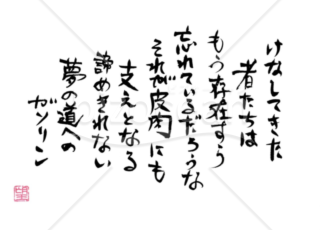 けなしてきた
者たちは
もう存在すら
忘れているだろうな
それが皮肉にも
支えとなる
諦めきれない
夢の道への
ガソリン